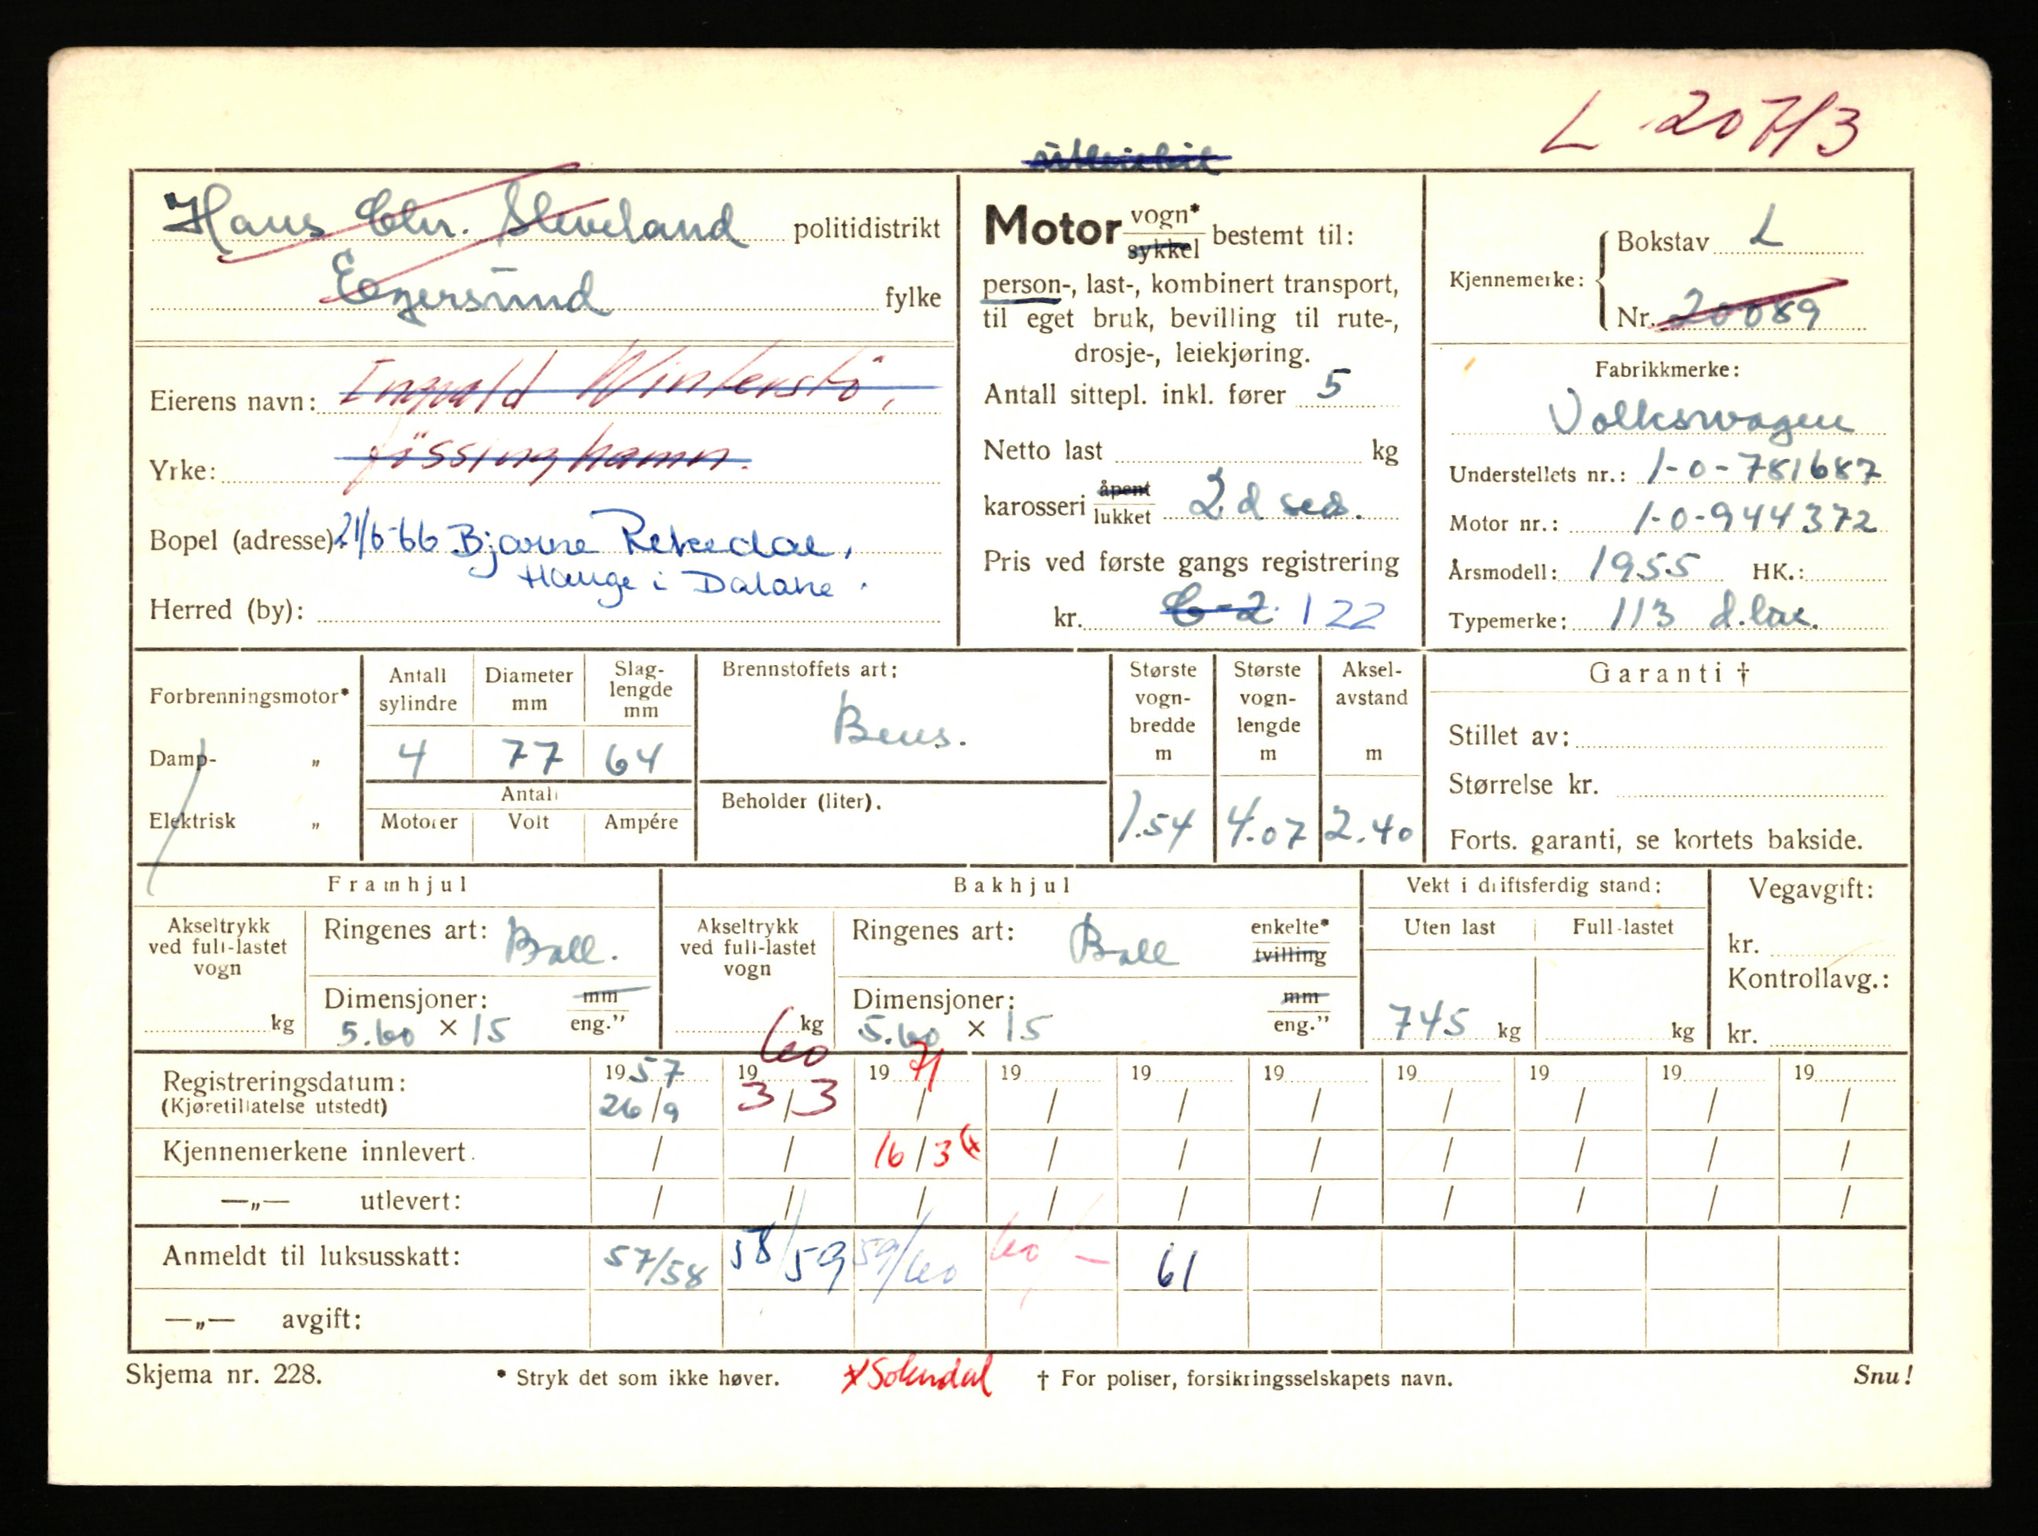 L 20713
Hans Chr. Sleveland politidistrikt
Egersund fylke
Eierens navn: Ingvald Winterstö,
Yrke: Jössinghamn.
Bopel (adresse) 21/6-66 Bjarne Rekedal,
Hauge i Dalane.
Herred (by):
Motor vogn* sykkel bestemt til:
person-, last-, kombinert transport,
til eget bruk, bevilling til rute-,
drosje-, leiekjøring.
Antall sittepl. inkl. fører 5
Netto last kg
karosseri åpent lukket 2 d sed.
Pris ved første gangs registrering
kr. C-2 122
Kjennemerke: Bokstav L
Nr. 20089
Fabrikkmerke:
Volkswagen
Understellets nr.: 1-0-781687
Motor nr.: 1-0-944372
Årsmodell: 1955 HK.:
Typemerke: 113 d.lux.
Forbrenningsmotor*
Damp- „
Elektrisk „
Antall sylindre Diameter mm Slag-lengde mm
4 77 64
Antall
Motorer Volt Ampére
Brennstoffets art:
Bens.
Beholder (liter).
Største vogn-bredde m Største vogn-lengde m Aksel-avstand m
1.54 4.07 2.40
Garanti †
Stillet av:
Størrelse kr.
Forts. garanti, se kortets bakside.
Framhjul
Akseltrykk ved full-lastet vogn
kg
Ringenes art: Ball.
Dimensjoner: mm eng."
5.60 × 15
Bakhjul
Akseltrykk ved full-lastet vogn
kg
Ringenes art: Ball enkelte* tvilling
Dimensjoner: mm eng."
5.60 × 15
Vekt i driftsferdig stand:
Uten last Full-lastet
745 kg kg
Vegavgift:
kr.
Kontrollavg.:
kr.
Registreringsdatum: 1957 1960 1971 19 19 19 19 19 19 19
(Kjøretillatelse utstedt) 26/9 3/3 / / / / / / / /
Kjennemerkene innlevert. / / 16/3 / / / / / / /
—„— utlevert: / / / / / / / / / /
Anmeldt til luksusskatt: 57/58 58/59 59/60 60/- 61
—„— avgift:
Skjema nr. 228. * Stryk det som ikke høver. * Sokndal † For poliser, forsikringsselskapets navn. Snu!